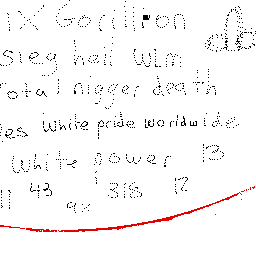 IX Gorillion
sieg heil wlm
total nigger death
yes white pride worldwide
white power 13
11 43 318 12
9x